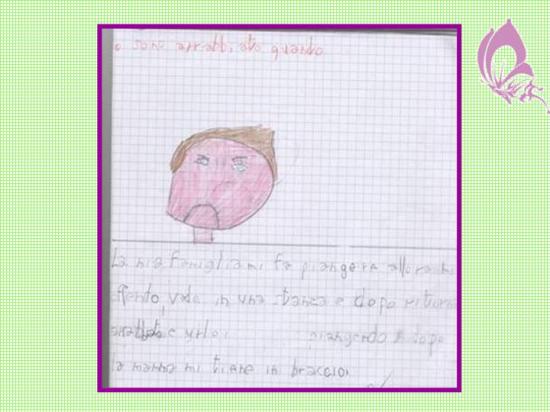 o sono arrabbiato quando
La mia famiglia mi fa piangere allora mi
offendo, vado in una stanza e dopo ritorno
arrabbiato e urlo piangendo e dopo
la mamma mi tiene in braccio.